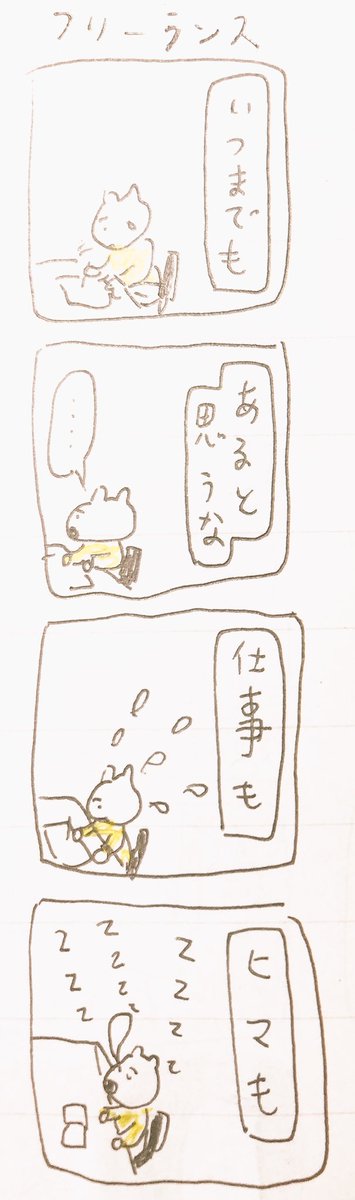 フリーランス
いつまでも
あると
思うな
……
仕事も
ヒマも
z z z z
z z z z z
z z z z z